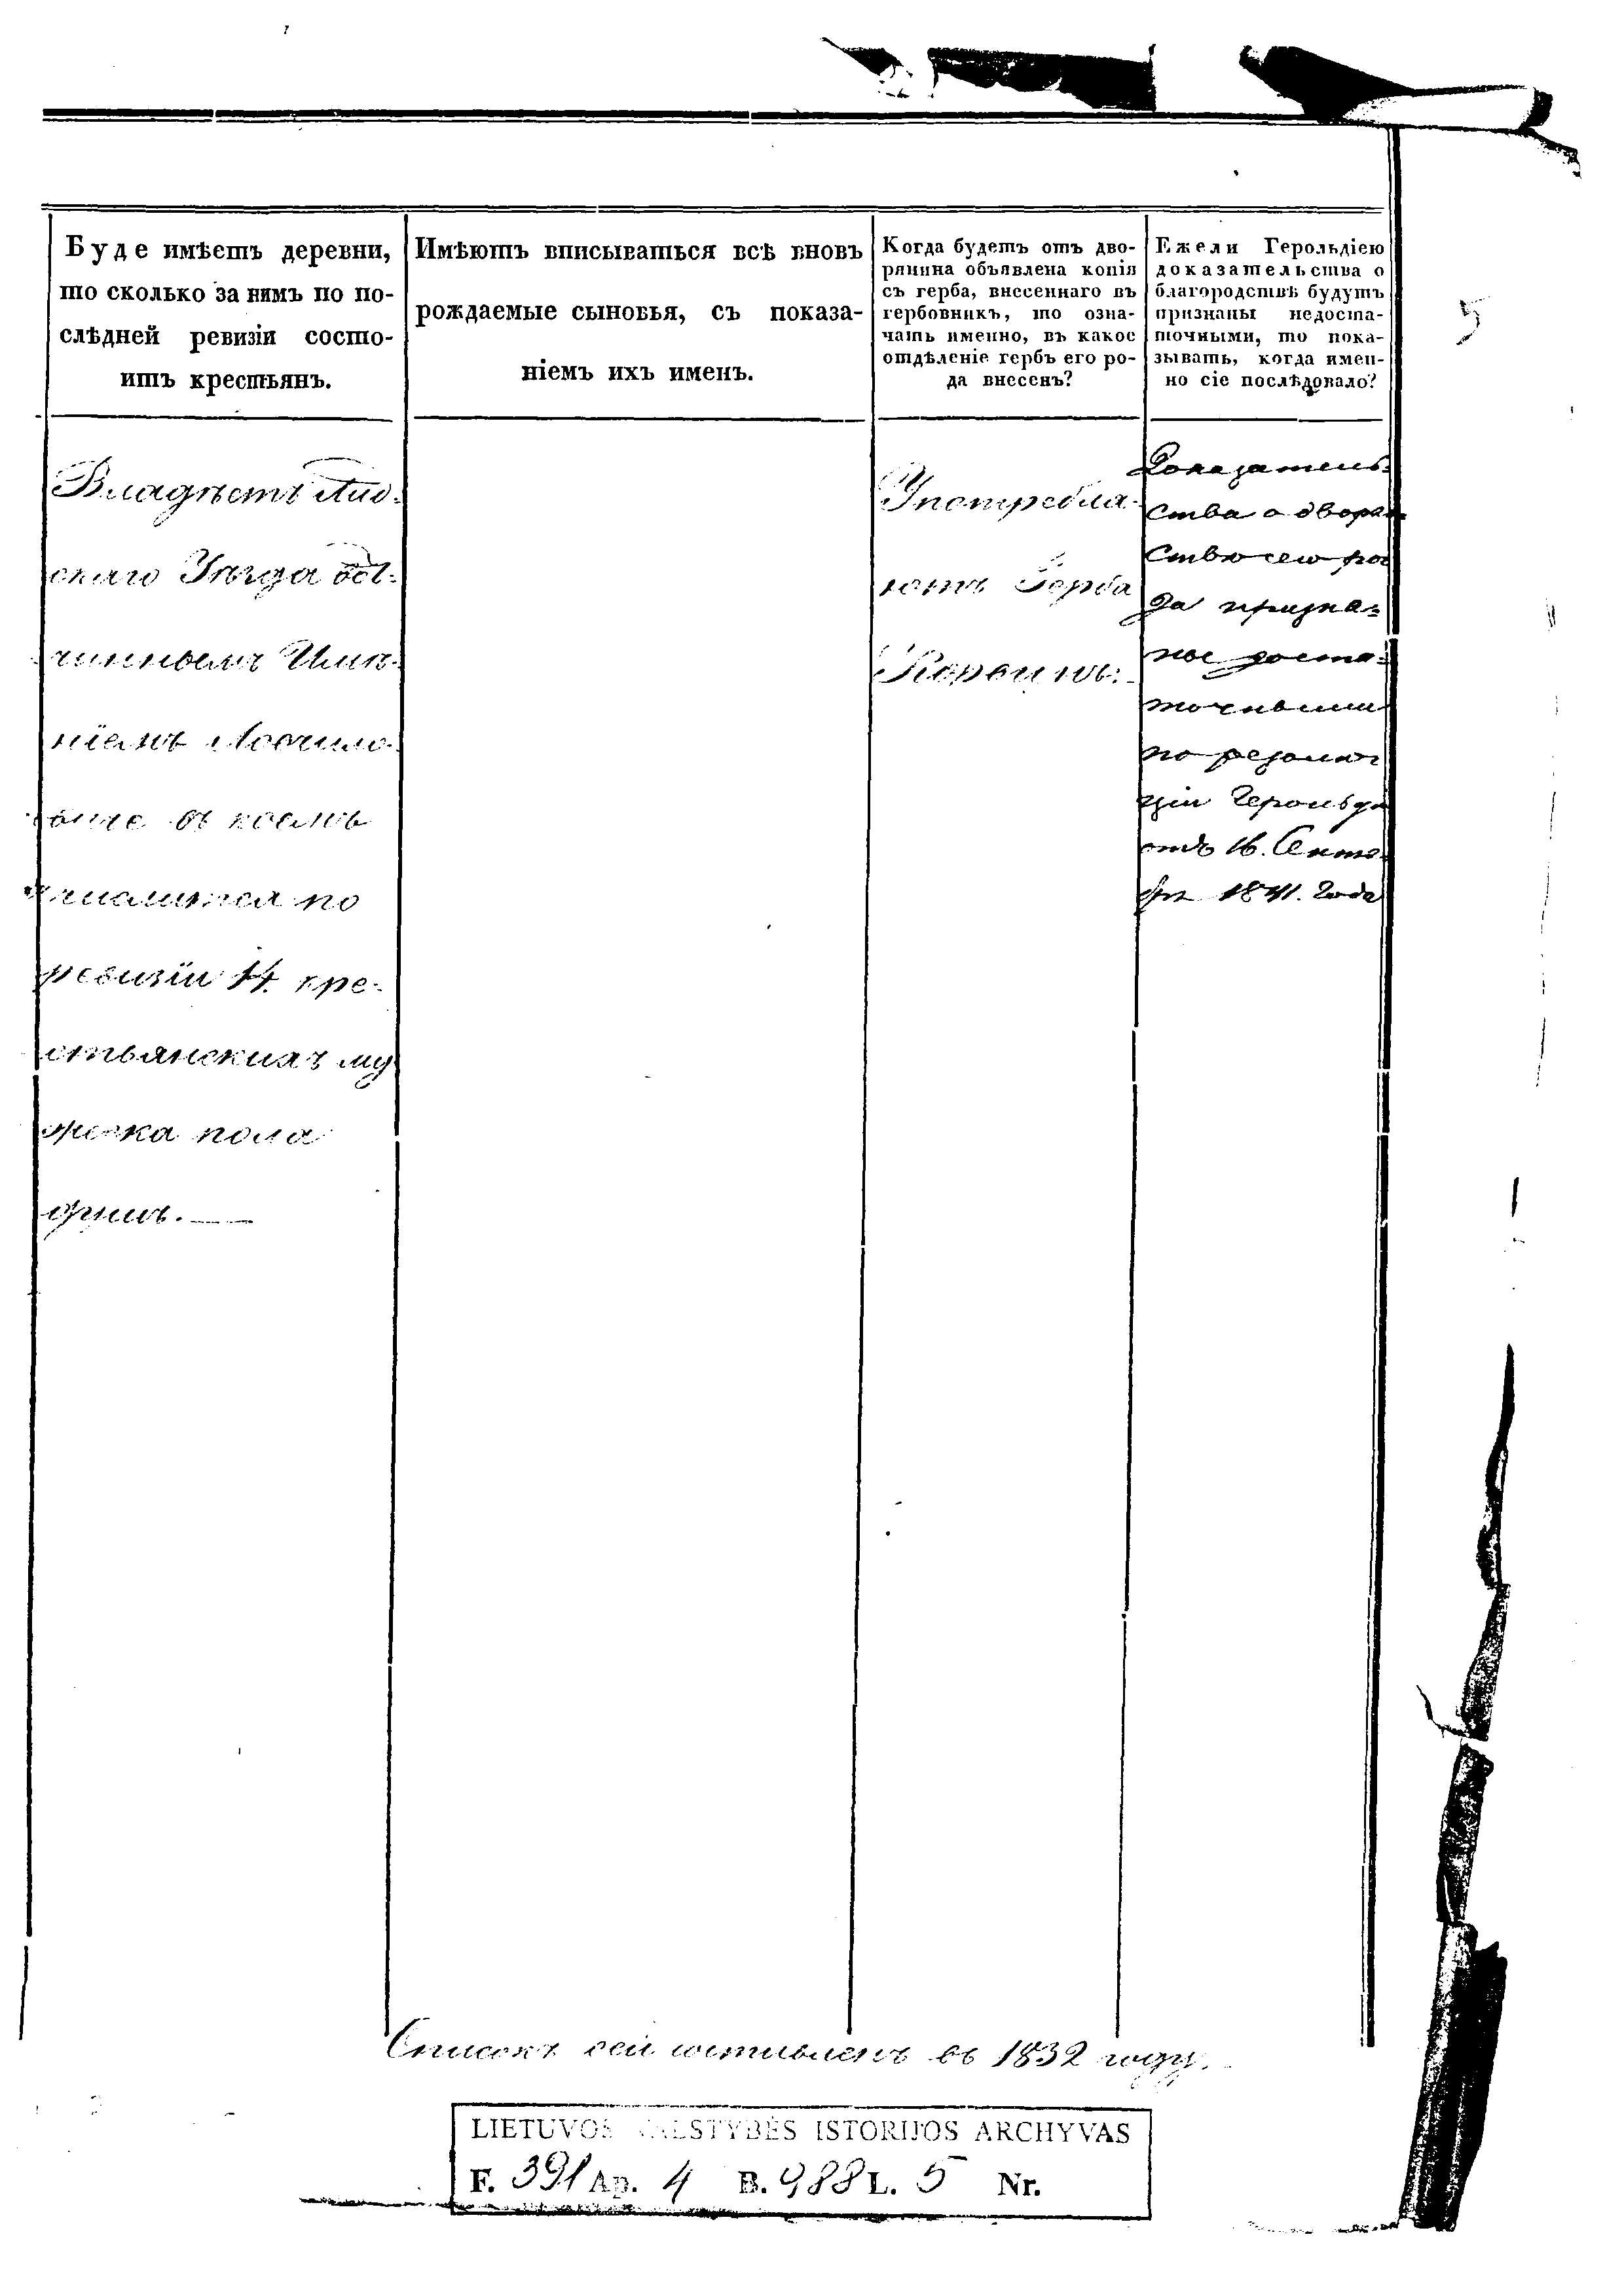 5
Буде имѣетъ деревни,
то сколько за нимъ по по-
слѣдней ревизіи состо-
итъ крестьянъ.
Имѣютъ вписываться всѣ вновь
рождаемые сыновья, съ показа-
ніемъ ихъ именъ.
Когда будетъ отъ дво-
рянина объявлена копія
съ герба, внесеннаго въ
гербовникъ, то озна-
чать именно, въ какое
отдѣленіе гербъ его ро-
да внесенъ?
Ежели Герольдіею
доказательства о
благородствѣ будутъ
признаны недоста-
точными, то пока-
зывать, когда имен-
но сіе послѣдовало?
Владѣетъ Лид-
скаго Уѣзда вот-
чиннымъ Имѣ-
ніемъ
въ коемъ
числится по
ревизіи 14. кре-
стьянскихъ му
жеска пола
душъ.
Употребля-
ютъ Герба
Корвинъ.
Доказатель-
ства о дворян
ствѣ сего ро
да призна-
ны доста-
точными
по резолю
ціи Герольдіи
отъ 16. Октя-
бря 1841. Года
Списокъ сей составленъ въ 1832 году.
LIETUVOS VALSTYBĖS ISTORIJOS ARCHYVAS
F. 391 Ap. 4 B. 988 L. 5 Nr.